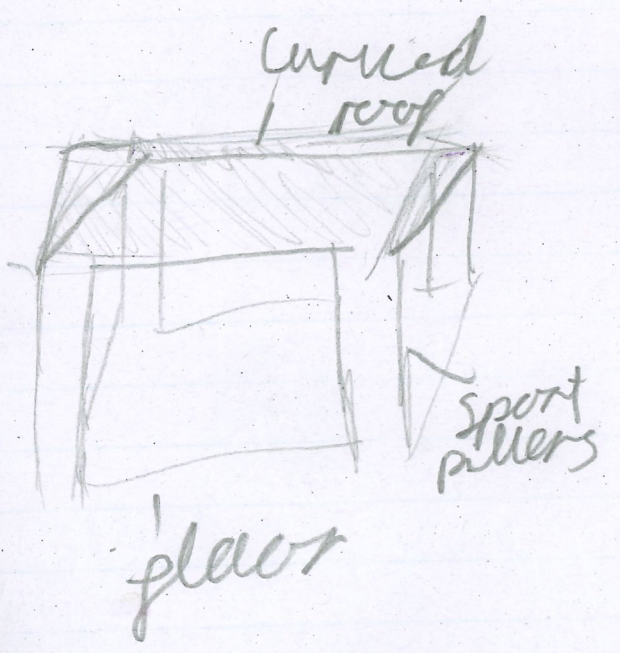 curved
roof
sport
pillers